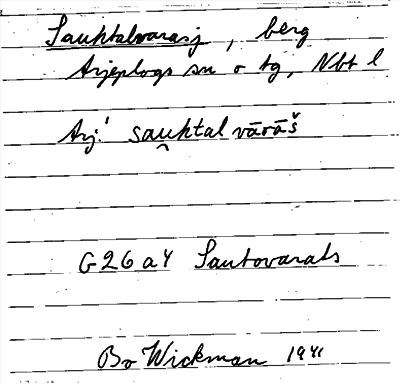 Sauktalvarasj, berg
Arjeplogs sn o tg, Nbt l
Arj: sau̯ktal vārāš
G26a4 Sautovarats
Bo Wickman 1941